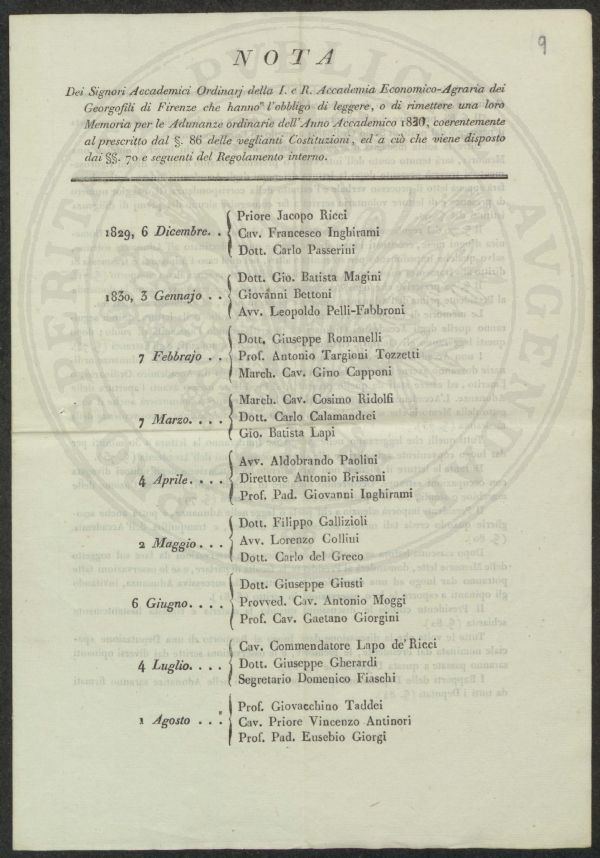 9
NOTA
Dei Signori Accademici Ordinarj della I. e R. Accademia Economico-Agraria dei
Georgofili di Firenze che hanno l'obbligo di leggere, o di rimettere una loro
Memoria per le Adunanze ordinarie dell'Anno Accademico 1830, coerentemente
al prescritto dal §. 86 delle veglianti Costituzioni, ed a ciò che viene disposto
dai §§. 70 e seguenti del Regolamento interno.
Priore Jacopo Ricci
1829, 6 Dicembre. . Cav. Francesco Inghirami
Dott. Carlo Passerini
Dott. Gio. Batista Magini
1830, 3 Gennajo . . Giovanni Bettoni
Avv. Leopoldo Pelli-Fabbroni
Dott. Giuseppe Romanelli
7 Febbrajo . . Prof. Antonio Targioni Tozzetti
March. Cav. Gino Capponi
March. Cav. Cosimo Ridolfi
7 Marzo. . . . Dott. Carlo Calamandrei
Gio. Batista Lapi
Avv. Aldobrando Paolini
4 Aprile. . . . Direttore Antonio Brissoni
Prof. Pad. Giovanni Inghirami
Dott. Filippo Gallizioli
2 Maggio. . . Avv. Lorenzo Collini
Dott. Carlo del Greco
Dott. Giuseppe Giusti
6 Giugno. . . . Provved. Cav. Antonio Moggi
Prof. Cav. Gaetano Giorgini
Cav. Commendatore Lapo de' Ricci
4 Luglio. . . . Dott. Giuseppe Gherardi
Segretario Domenico Fiaschi
Prof. Giovacchino Taddei
1 Agosto . . . Cav. Priore Vincenzo Antinori
Prof. Pad. Eusebio Giorgi